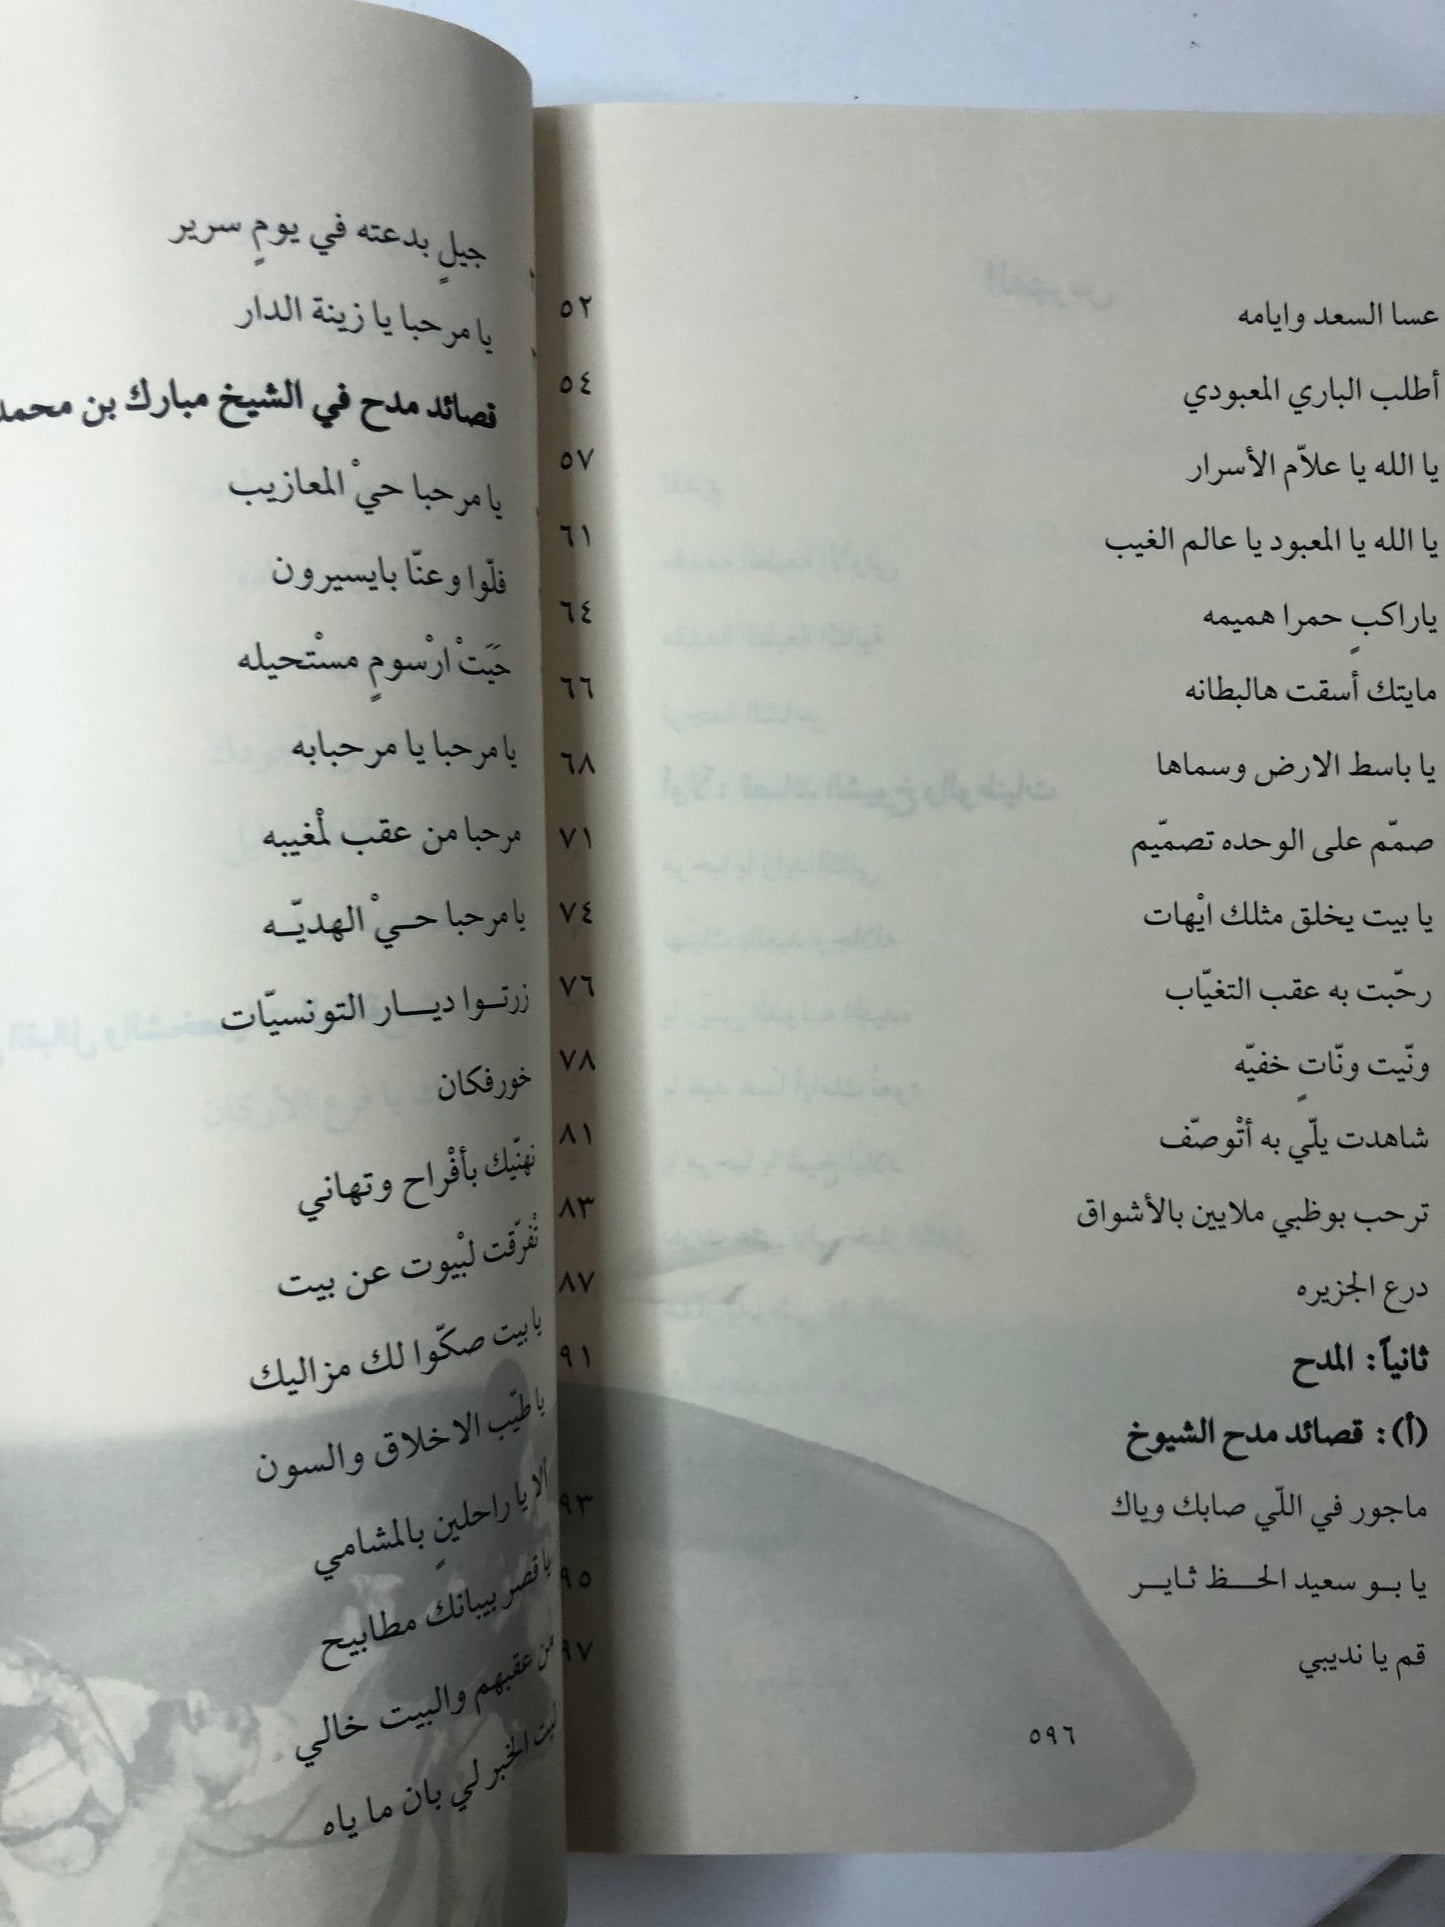 عسا السعد وايامه ٥٢
أطلب الباري المعبودي ٥٤
يا الله يا علاّم الأسرار ٥٧
يا الله يا المعبود يا عالم الغيب ٦١
ياراكبٍ حمرا هميمه ٦٤
مايتك أسقت هالبطانه ٦٦
يا باسط الارض وسماها ٦٨
صمّم على الوحده تصمّيم ٧١
يا بيت يخلق مثلك ايْهات ٧٤
رحّبت به عقب التغيّاب ٧٦
ونّيت ونّاتٍ خفيّه ٧٨
شاهدت يلّي به أتْوصّف ٨١
ترحب بوظبي ملايين بالأشواق ٨٣
درع الجزيره ٨٧
ثانياً: المدح ٩١
(أ): قصائد مدح الشيوخ
ماجور في اللّي صابك وياك ٩٣
يا بــو سعيد الحــظ ثـايــر ٩٥
قم يا نديبي ٩٧
٥٩٦
جيلٍ بدعته في يومٍ سرير
يا مرحبا يا زينة الدار
قصائد مدح في الشيخ مبارك بن محمد
يا مرحبا حيْ المعازيب
فلّوا وعنّا بايسيرون
حَيَتْ ارْسومٍ مسْتحيله
يا مرحبا يا مرحبابه
مرحبا من عقب لمْغيبه
يا مرحبا حــيْ الهديّــه
زرتــوا ديــار التونسيّات
خورفكان
نهنّيك بأفْراح وتهاني
تْفرّقت لبْيوت عن بيت
يا بيت صكّوا لك مزاليك
يا طيّب الاخلاق والسون
ألا يا راحلينٍ بالمشامي
يا قصر بيبانك مطابيح
من عقبهم والبيت خالي
ليت الخبر لي بان ما ياه